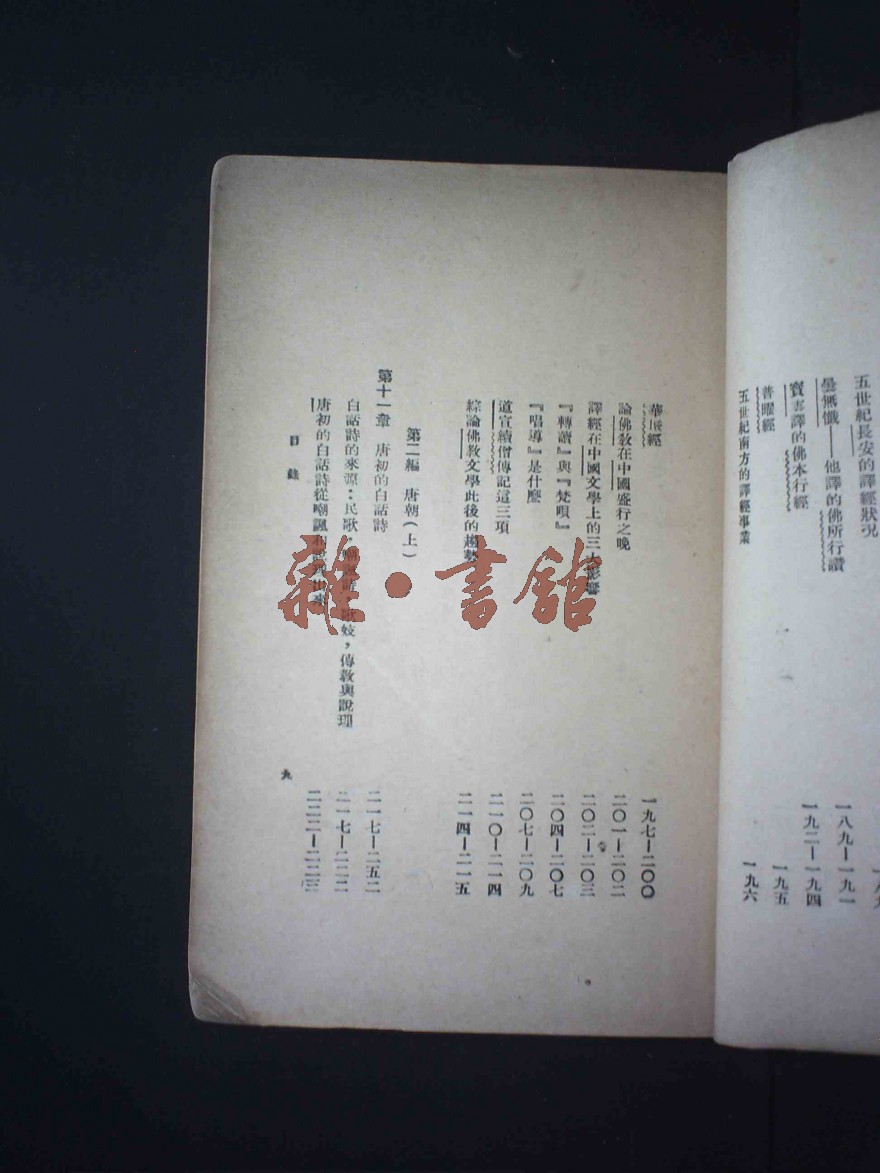 五世紀長安的譯經狀況
曇無懺——他譯的佛所行讚 一八九—一九一
寶雲譯的佛本行經 一九二—一九四
普曜經 一九五
五世紀南方的譯經事業 一九六
華嚴經 一九七—二〇〇
論佛教在中國盛行之晚 二〇一—二〇二
譯經在中國文學上的三大影響 二〇二—二〇三
『轉讀』與『梵唄』 二〇四—二〇七
『唱導』是什麼 二〇七—二〇九
道宣續僧傳記這三項 二一〇—二一四
綜論佛教文學此後的趨勢 二一四—二一五
第二編 唐朝（上）
第十一章 唐初的白話詩 二一七—二五二
白話詩的來源：民歌，歌妓，傳教與說理 二一七—二二二
唐初的白話詩從嘲諷和出來 二二二—二二三
目錄
九
雜·書館